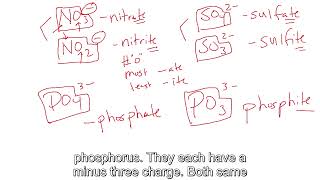 NO3⁻ - nitrate
SO4²⁻ - sulfate
NO2⁻ - nitrite
SO3²⁻ - sulfite
# "O"
most - ate
least - ite
PO4³⁻ - phosphate
PO3³⁻ phosphite
phosphorus. They each have a
minus three charge. Both same